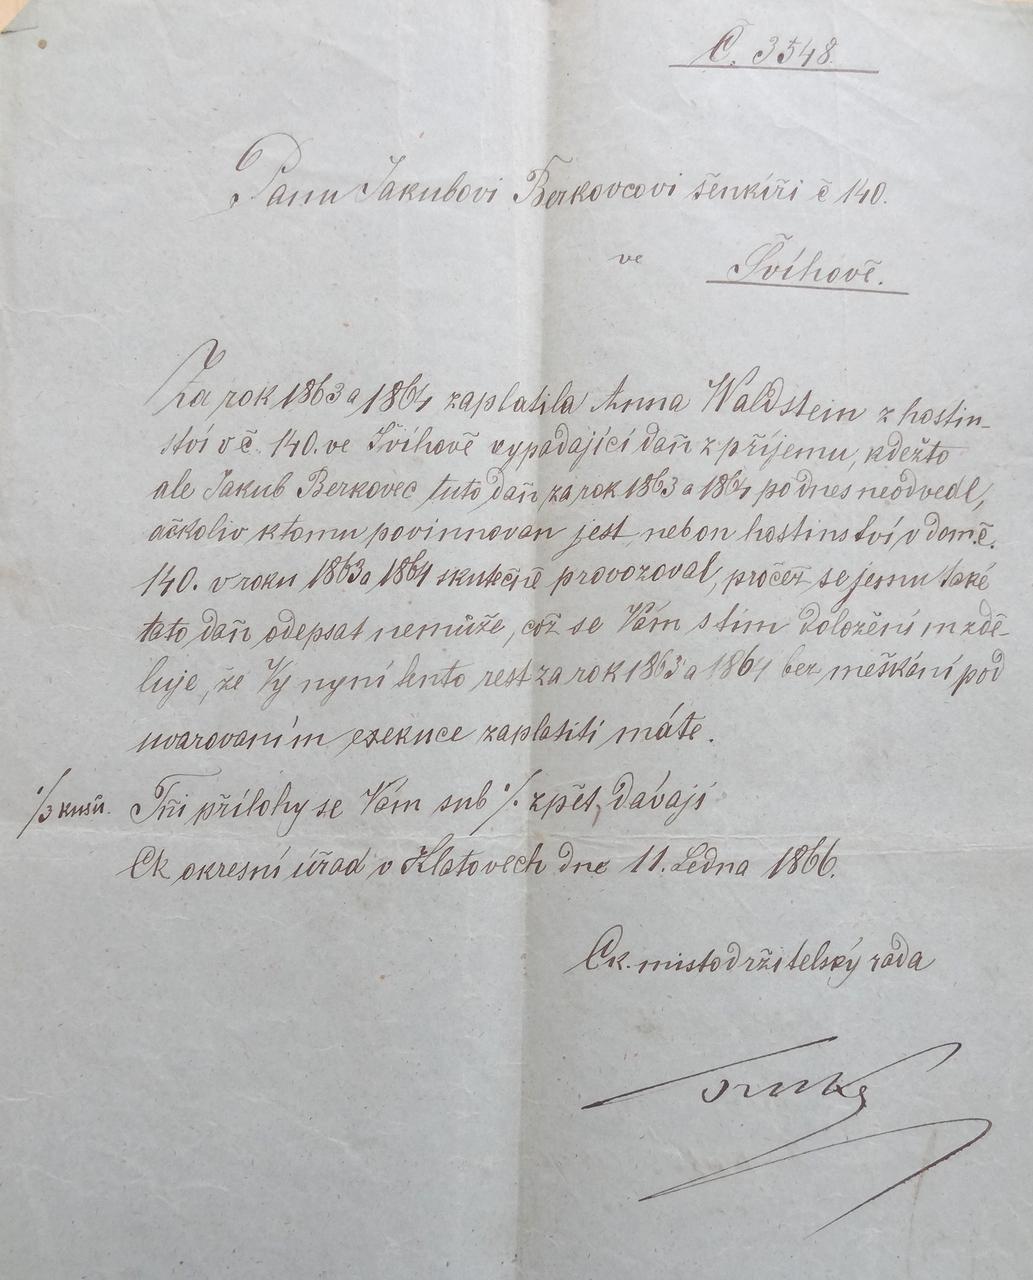 Č. 3548.
Panu Jakubovi Berkovcovi šenkíři č 140.
ve Švíhově.
Za rok 1863 a 1864 zaplatila Anna Waldstein z hostin-
ství v č. 140. ve Švíhově vypadající daň z příjemu, kdežto
ale Jakub Berkovec tuto daň za rok 1863 a 1864 podnes neodvedl,
ačkoliv k tomu povinnován jest, neb on hostinství v dom. č.
140. v roku 1863 a 1864 skutečně provozoval, pročež se jemu také
tato daň odepsat nemůže, což se Vám s tím doložení m zdě-
luje, že Vy nyní tento rest za rok 1863 a 1864 bez meškání pod
uvarovaním exekuce zaplatiti máte.
·/3 kusů. Tři přílohy se Vám sub ·/. zpět dávají
Ck okresní úřad v Klatovech dne 11. Ledna 1866.
Ck. místodržitelský rada